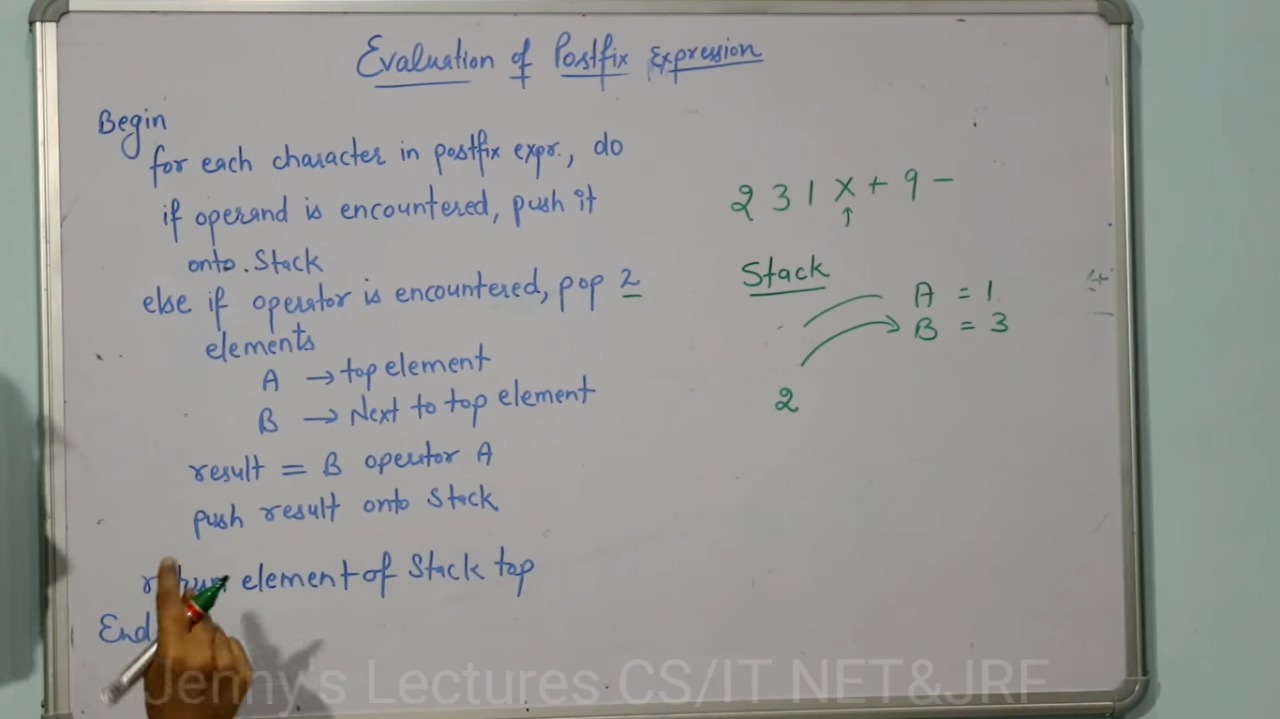 Evaluation of Postfix Expression
Begin
for each character in postfix expr., do
if operand is encountered, push it
onto Stack
else if operator is encountered, pop 2
elements
A → top element
B → Next to top element
result = B operator A
push result onto Stack
return element of Stack top
End
2 3 1 × + 9 −
↑
Stack
A = 1
B = 3
2
Jenny's Lectures CS/IT NET&JRF